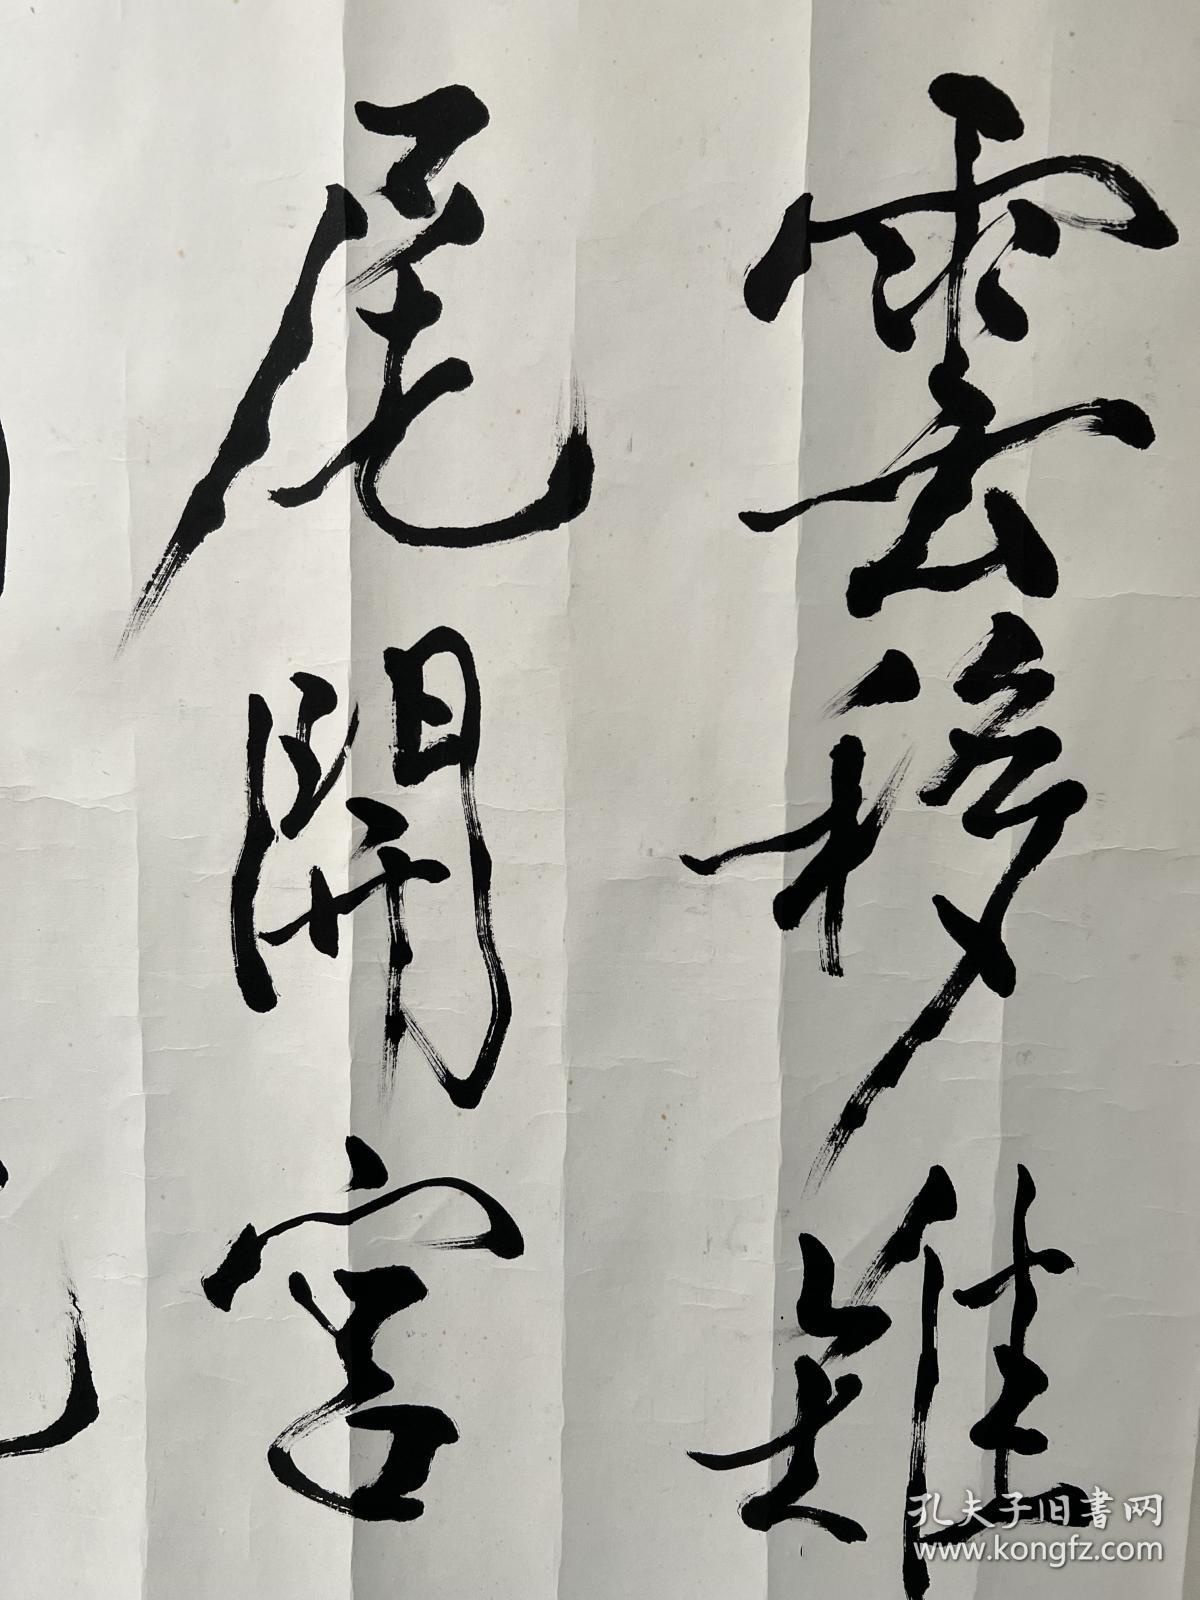 雲移雉
尾開宮
孔夫子旧書网
www.kongfz.com